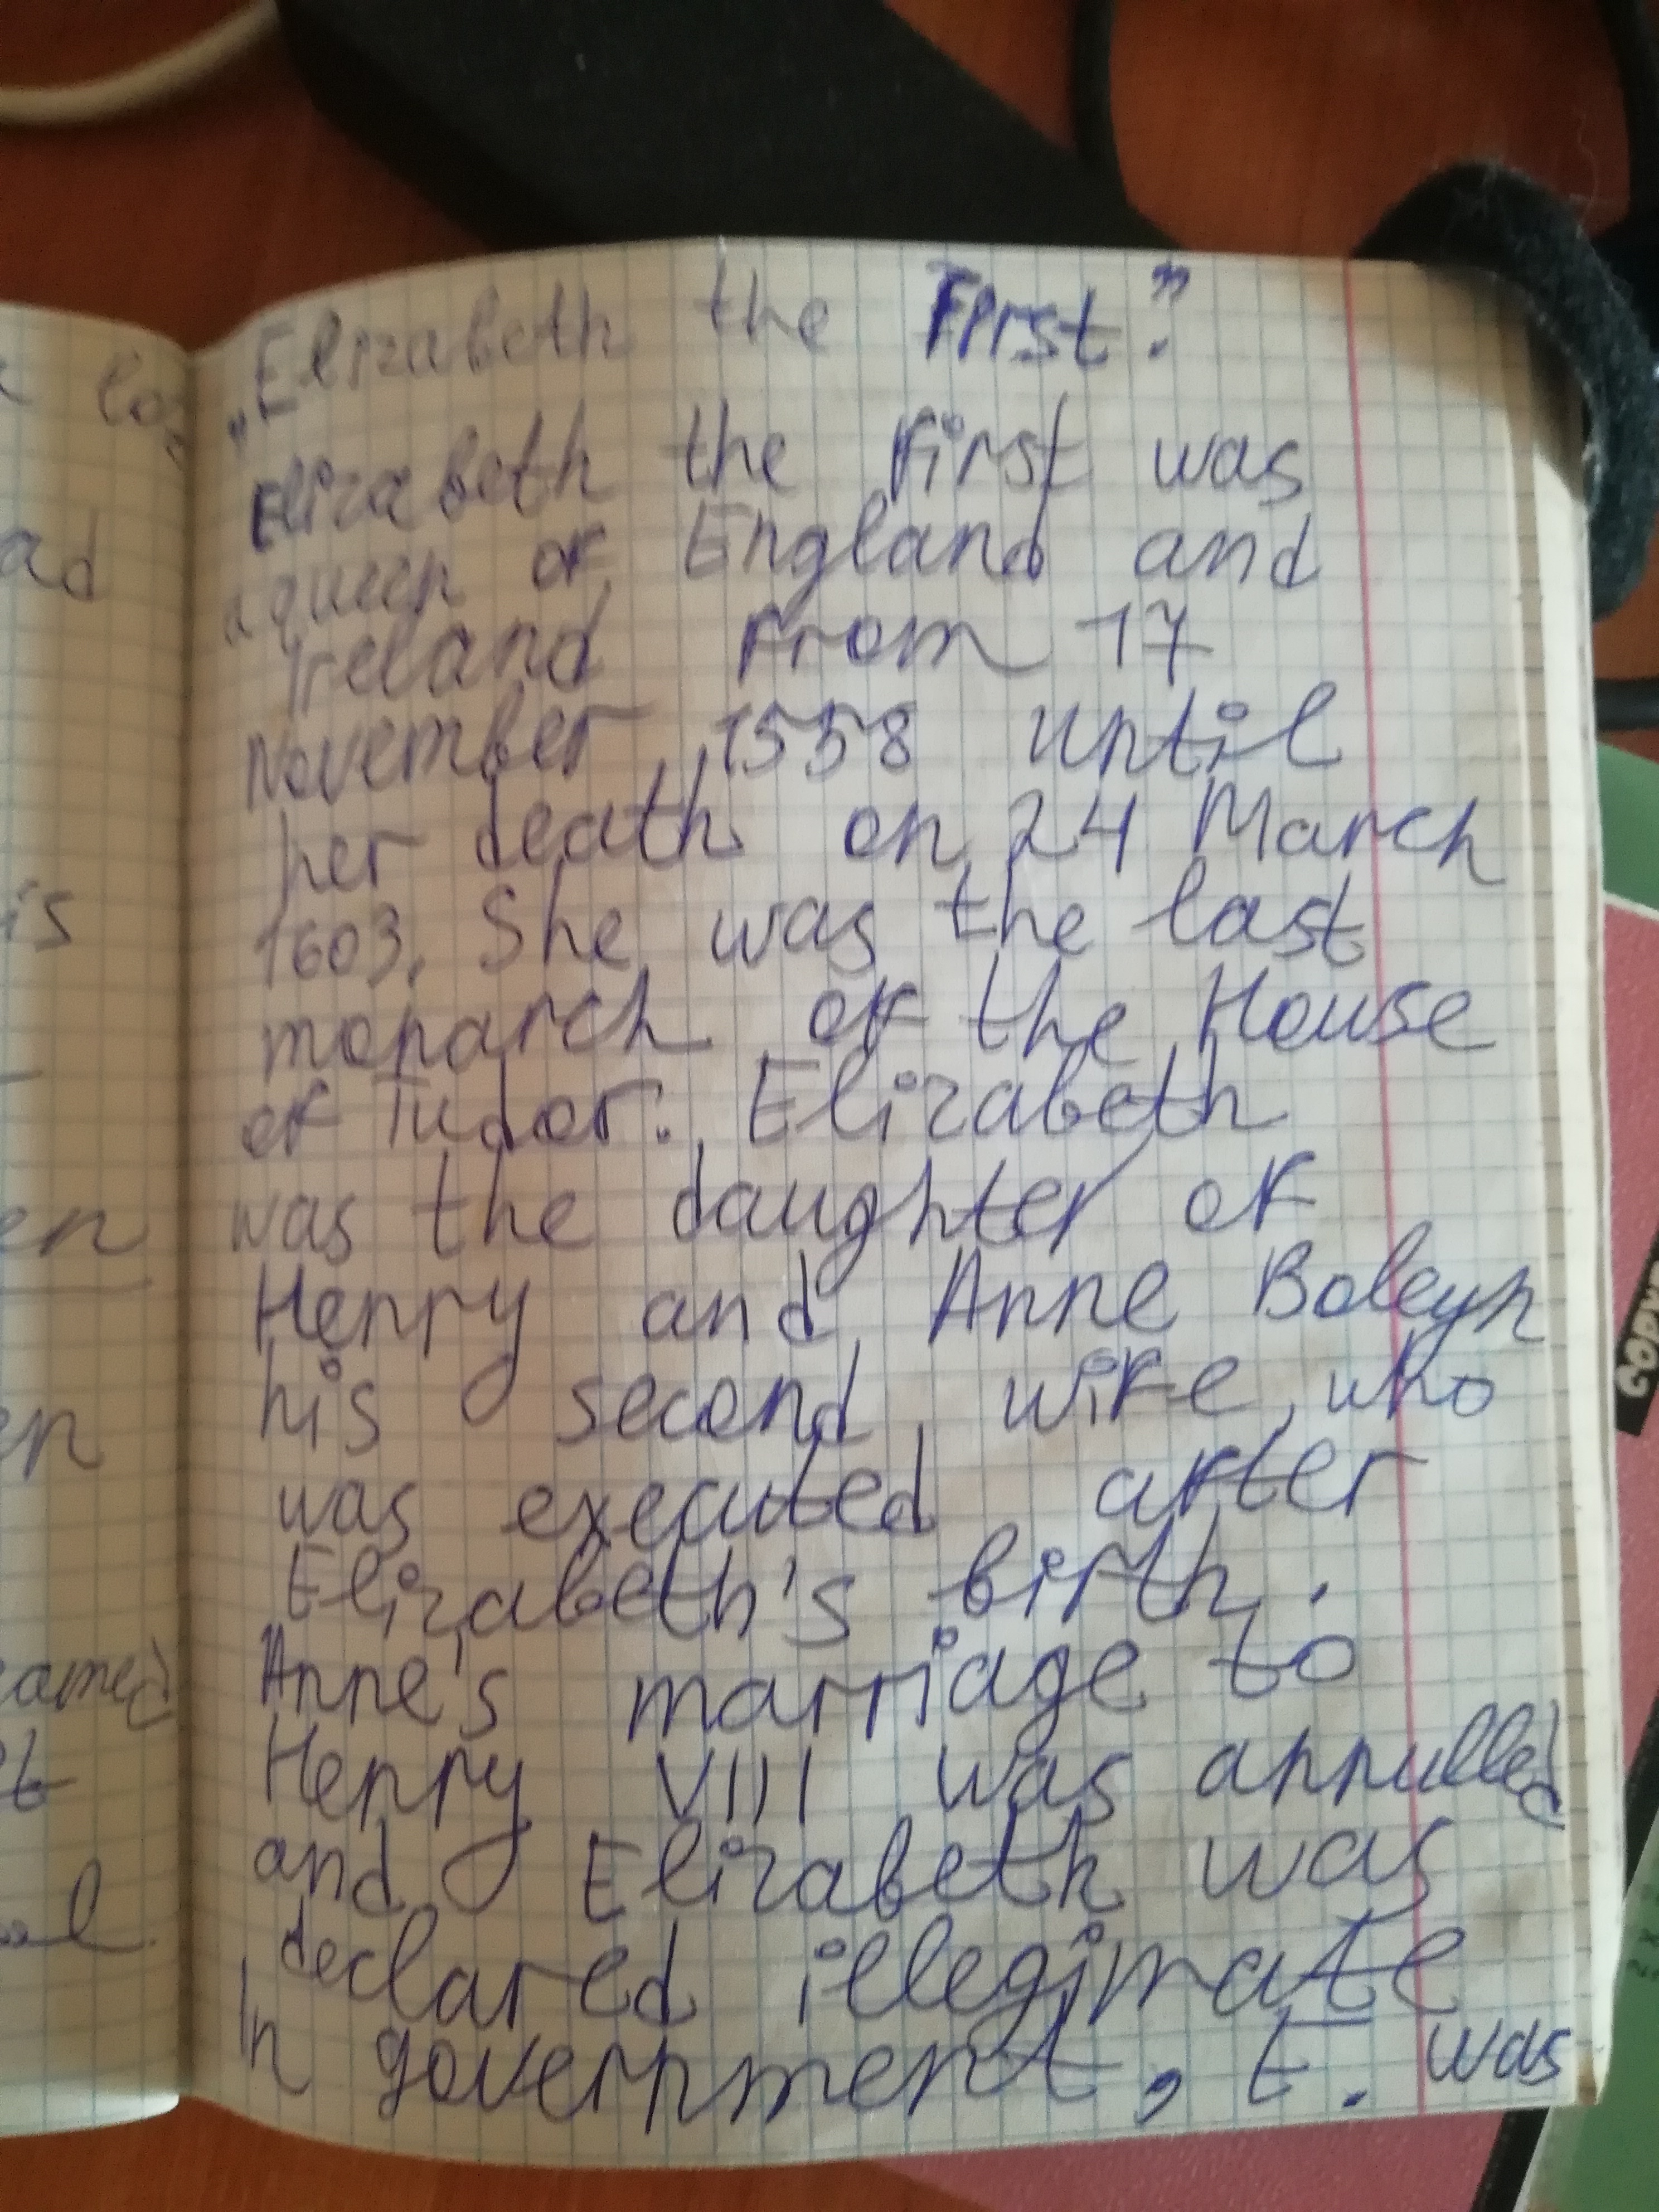 „Elizabeth the First."
Elizabeth the First was
a queen of England and
Ireland From 17
November 1558 until
her death on 24 March
1603. She was the last
monarch of the House
of Tudor. Elizabeth
was the daughter of
Henry and Anne Boleyn
his second wife, who
was executed after
Elizabeth's birth.
Anne's marriage to
Henry VIII was annulled
and Elizabeth was
declared illegimate
In government, E. was
ad
is
en
en
amed